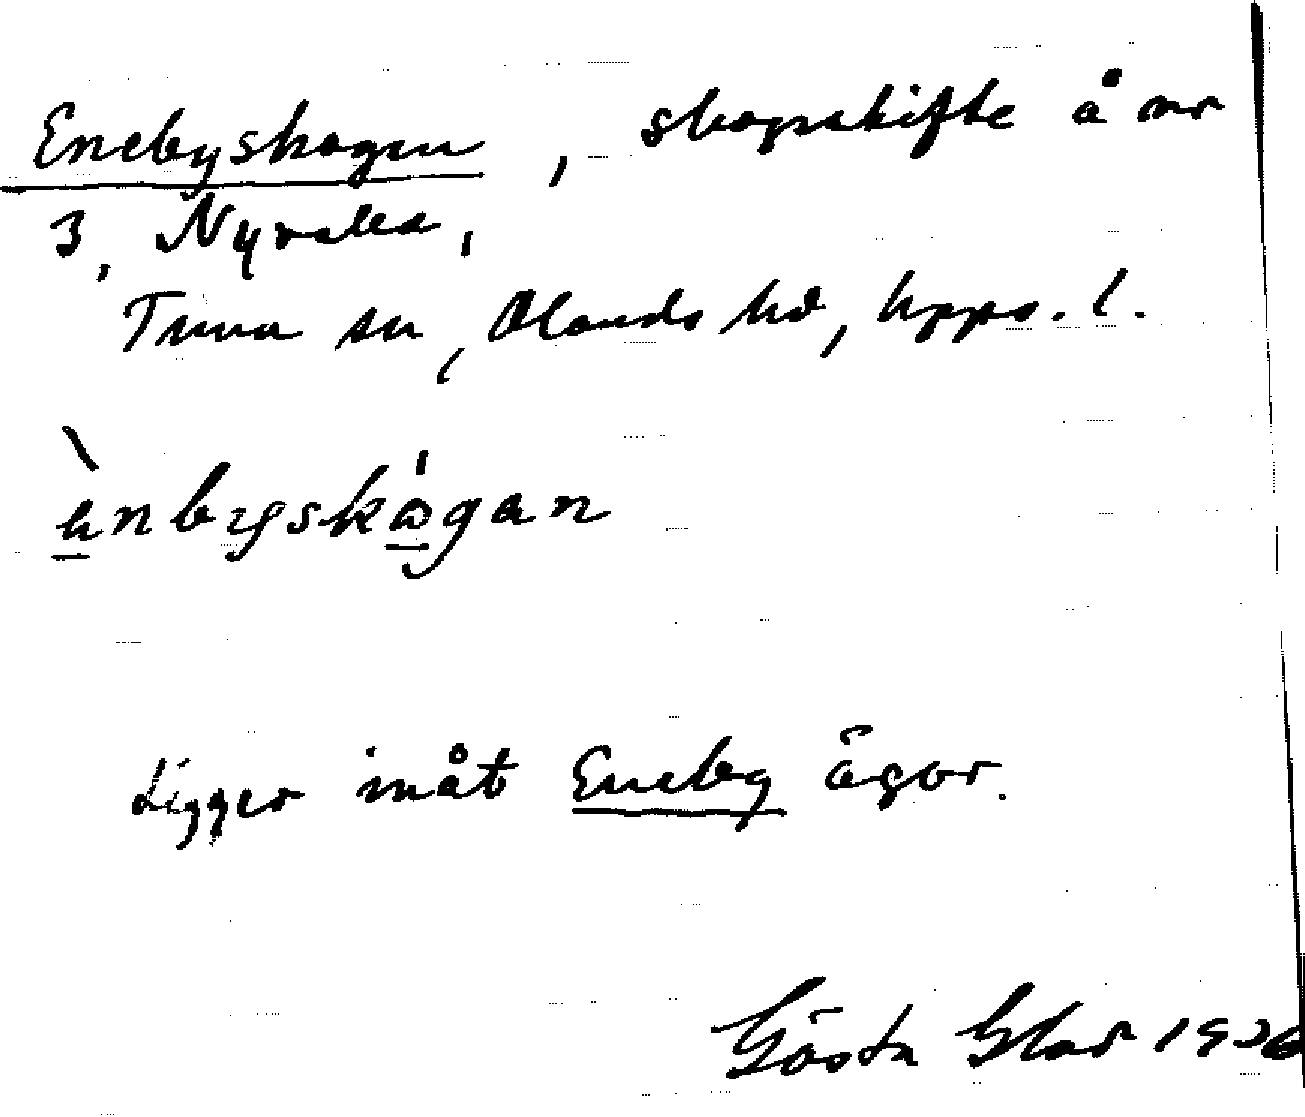 Enebyskogen, skogsskifte å nr
3, Nyvalla,
Tuna sn, Olands hd, Upps. l.
ènbyskógan
Ligger inåt Eneby ägor.
Gösta Glar 1936